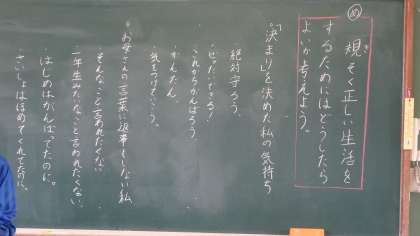 め
規そく正しい生活を
き
するためにはどうしたら
よいか考えよう。
「決まり」を決めた私の気持ち
絶対守ろう。
・ぜったいできる!
・これからがんばろう
・かんたん。
・気をつけていこう。
お母さんの言葉に返事をしない私
・そんなこと言われたくない
・一年生みたいなこと言われたくない。
・はじめはがんばってたのに。
・さいしょはほめてくれてたのに。